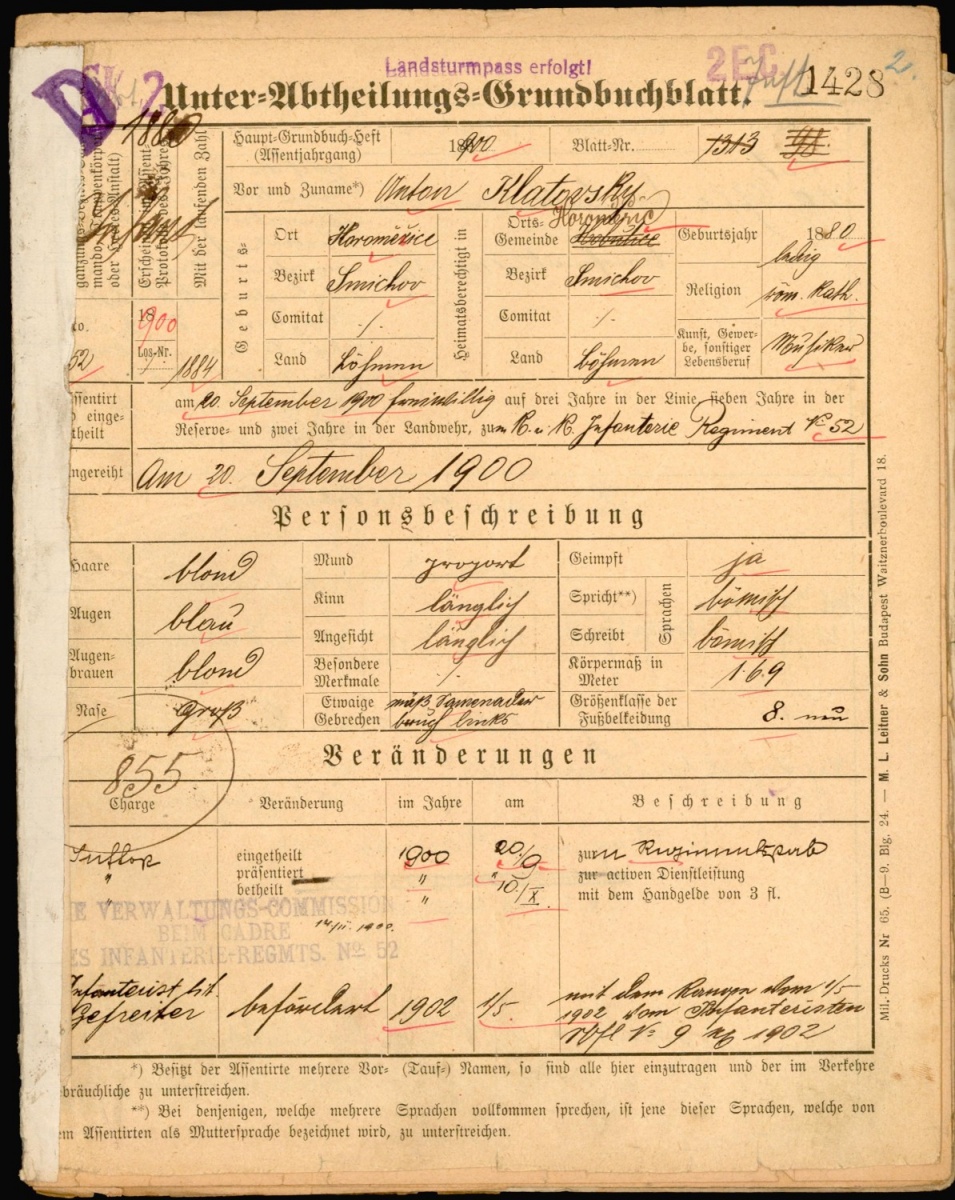 Landsturmpass erfolgt!
2.
Unter=Abtheilungs=Grundbuchblatt.
1428
1880
ganzungs-
mando,
oder
Erschein
Protokol
Mit der laufenden Zahl
Haupt-Grundbuch-Heft
(Assentjahrgang)
1900
Blatt-Nr.
1313
Vor und Zuname*) Anton Klatovský
Geburts-
Ort Horoměřice
Bezirk Smichov
Comitat ./.
Land Böhmen
Heimatsberechtigt in
Orts-
Gemeinde
Bezirk Smichov
Comitat ./.
Land Böhmen
Geburtsjahr 1880
ledig
Religion röm. kath.
Kunst, Gewer-
be, sonstiger
Lebensberuf
Musiker
52
1900
Los-Nr.
1884
ssentirt
einge-
theilt
am 20. September 1900 freiwillig auf drei Jahre in der Linie, sieben Jahre in der
Reserve- und zwei Jahre in der Landwehr, zum K. u. K. Infanterie Regiment No 52
ngereiht Am 20. September 1900
Personsbeschreibung
Haare blond
Mund proport
Geimpft ja
Augen blau
Kinn länglich
Spricht**) böhmisch
Sprachen
Angesicht länglich
Schreibt böhmisch
Augen-
brauen
blond
Besondere
Merkmale
./.
Körpermaß in
Meter
1.69
Nase groß
Etwaige
Gebrechen
bruch links
Größenklasse der
Fußbekleidung
8. neu
Veränderungen
855
Charge Veränderung im Jahre am Beschreibung
eingetheilt 1900 20./9. zum
präsentiert " " zur activen Dienstleistung
betheilt " 10./X. mit dem Handgelde von 3 fl.
E VERWALTUNGS-COMMISSION
BEIM CADRE
ES INFANTERIE-REGMTS. No. 52
Infanterist tit.
Gefreiter
befördert 1902 1/5.
mit dem Range vom 1/5
1902 vom Infanteristen
No 9 1902
*) Besitzt der Assentirte mehrere Vor- (Tauf-) Namen, so sind alle hier einzutragen und der im Verkehre
ebräuchliche zu unterstreichen.
**) Bei denjenigen, welche mehrere Sprachen vollkommen sprechen, ist jene dieser Sprachen, welche von
em Assentirten als Muttersprache bezeichnet wird, zu unterstreichen.
Mil. Drucks Nr 65. (B—9. Blg. 24. — M. L. Leitner & Sohn Budapest Waitznerboulevard 18.